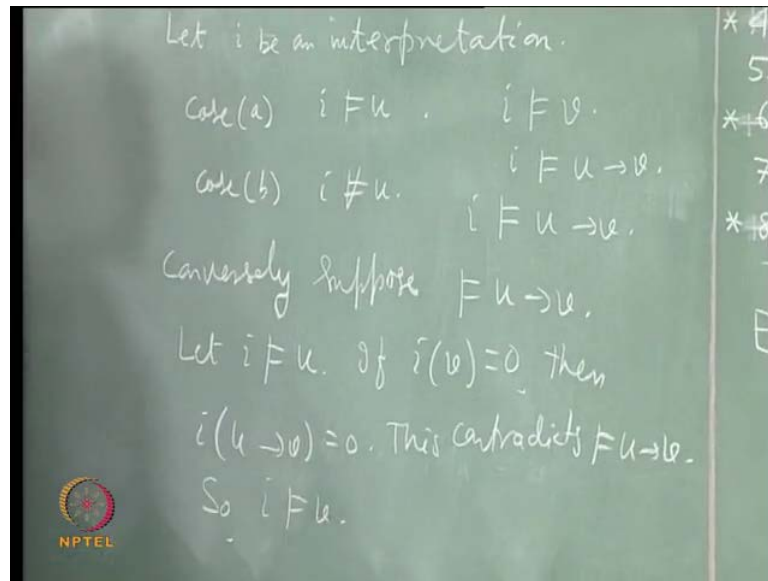 Let i be an interpretation.
Case(a) i ⊨ u . i ⊨ v.
i ⊨ u → v.
Case(b) i ⊭ u.
i ⊨ u → v.
Conversely suppose ⊨ u → v.
Let i ⊨ u. If i(v) = 0 then
i(u → v) = 0. This contradicts ⊨ u → v.
So i ⊨ v.
* 4
5.
* 6
7
* 8
E
NPTEL